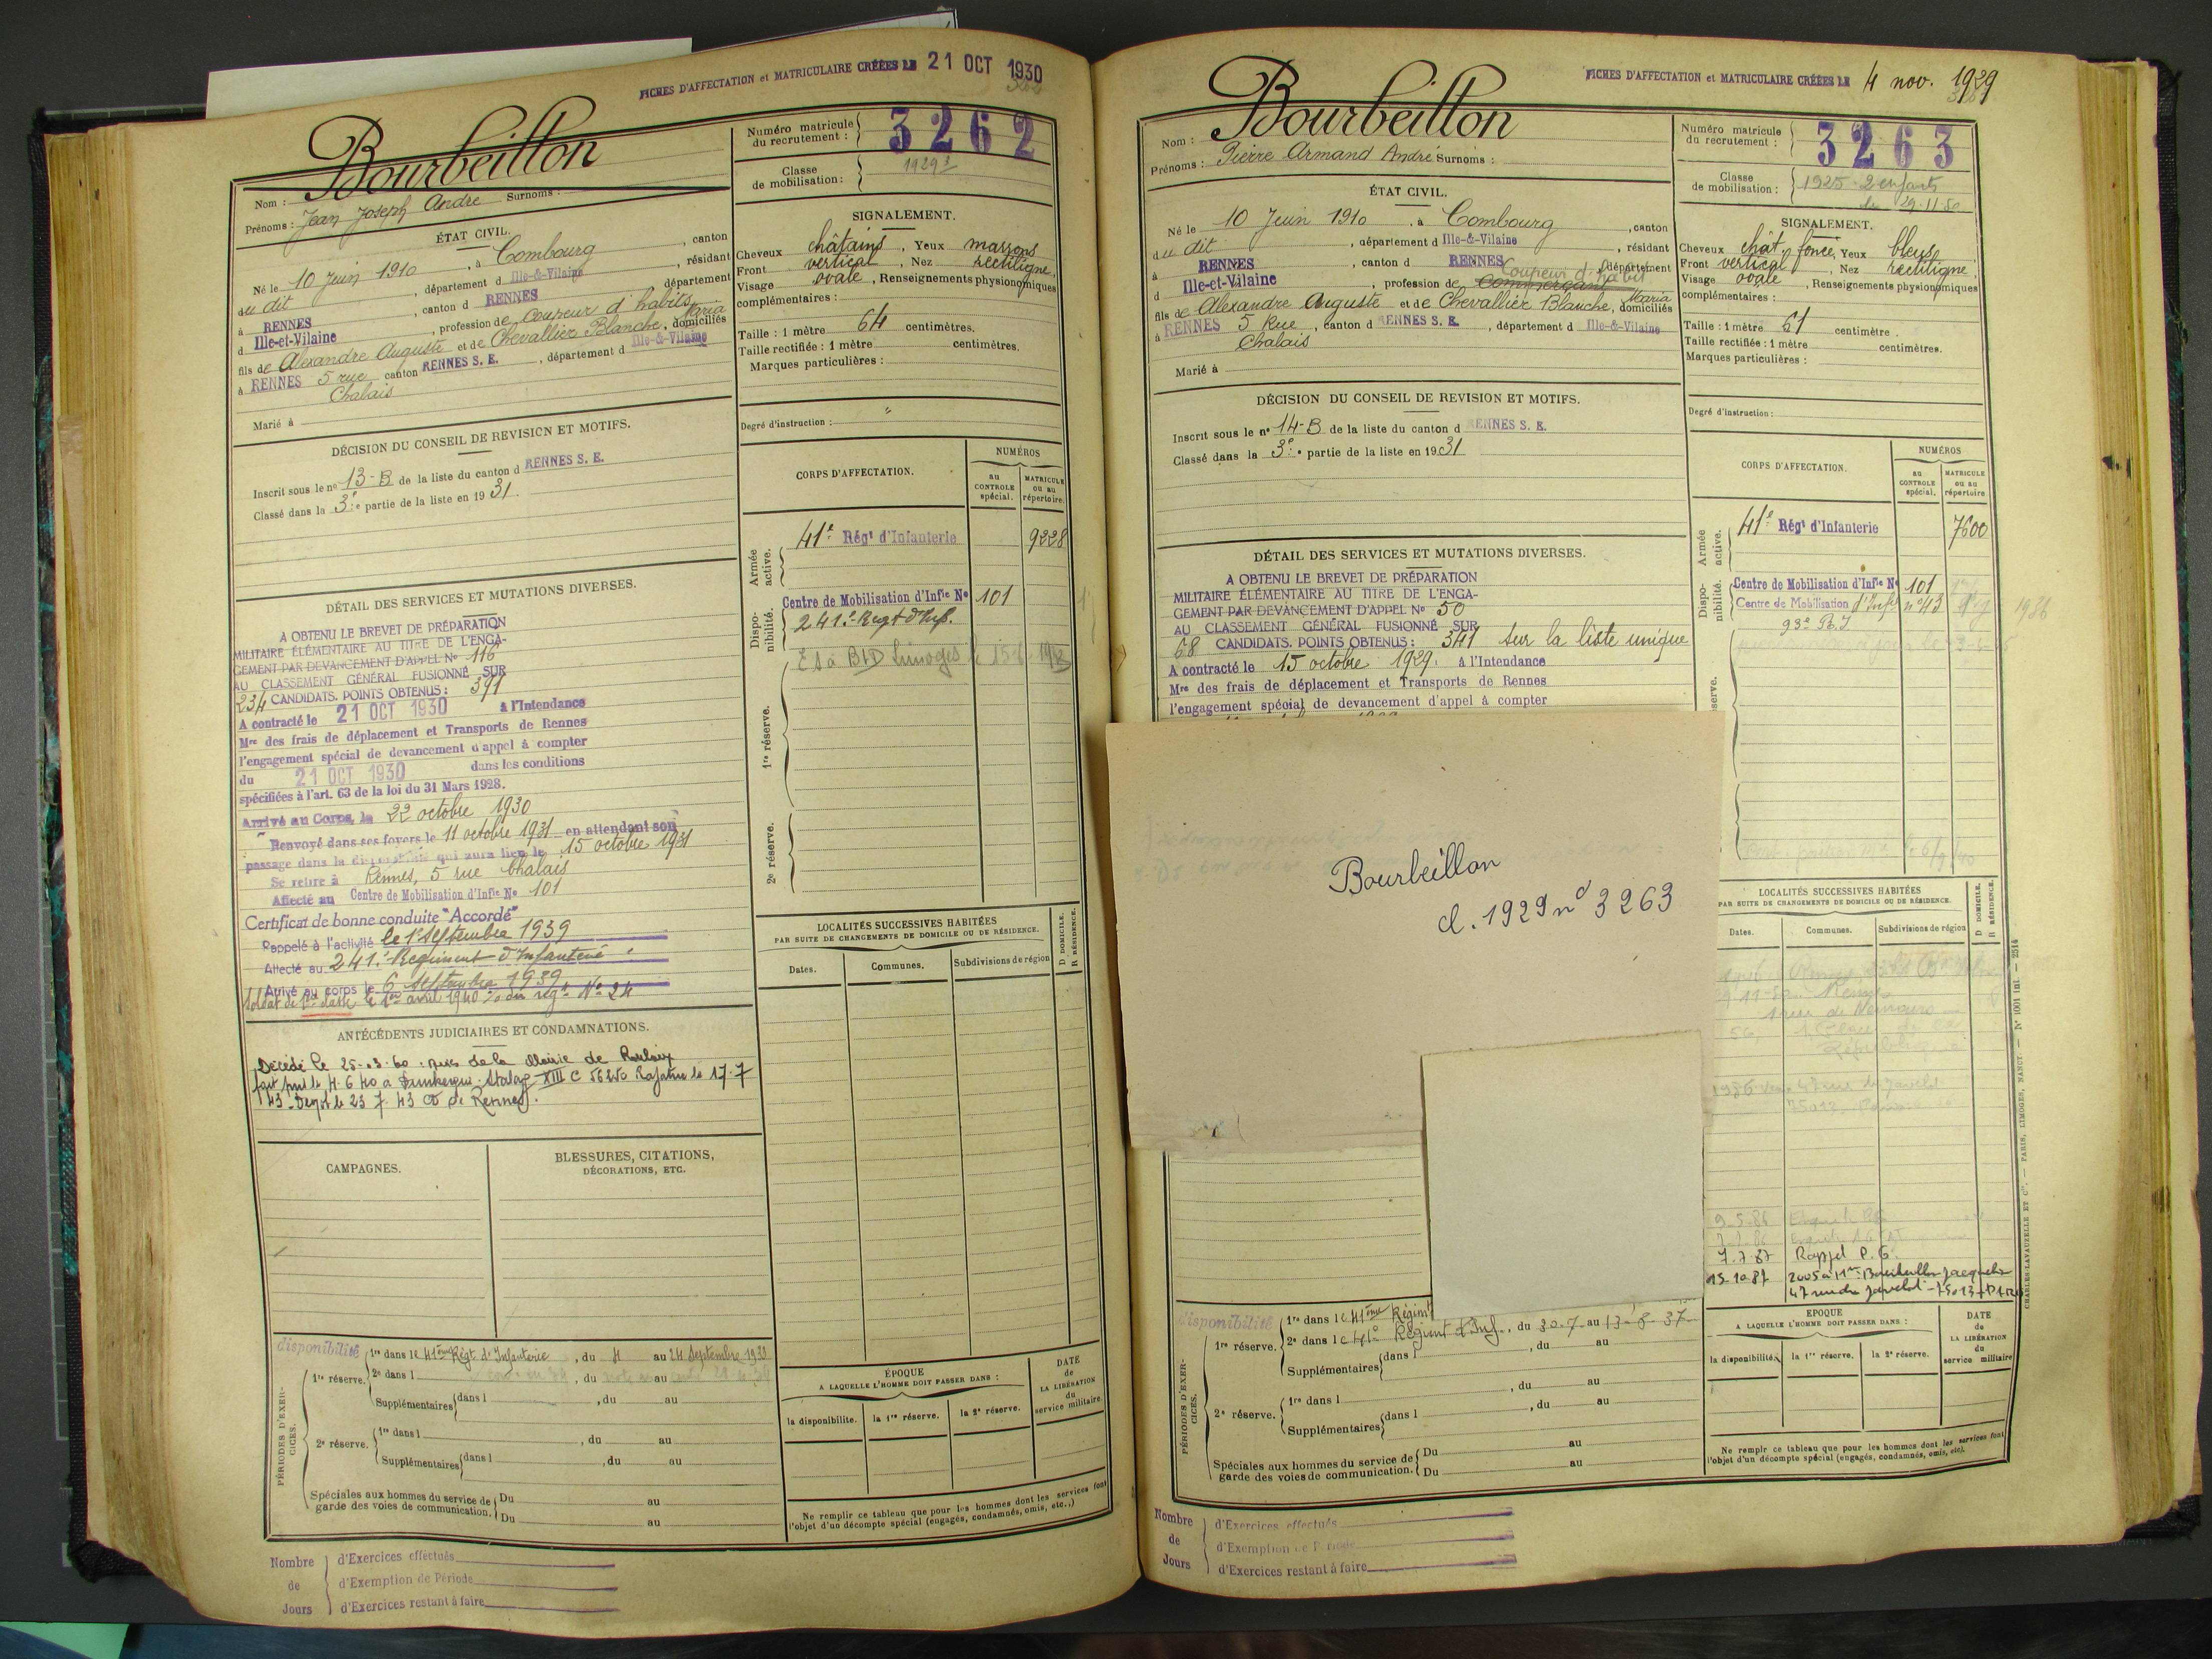 FICHES D'AFFECTATION et MATRICULAIRE CRÉÉES LE 21 OCT 1930
Nom : Bourbeillon
Prénoms : Jean Joseph André Surnoms :
Numéro matricule du recrutement : 3262
Classe de mobilisation : 1929
ÉTAT CIVIL.
Né le 10 Juin 1910, à Combourg, canton
du dit, département d Ille-&-Vilaine, résidant
à RENNES, canton d RENNES département
d Ille-et-Vilaine, profession de Coupeur d'habits
fils de Alexandre Auguste et de Chevallier Blanche, Maria domiciliés
à RENNES 5 rue canton RENNES S. E., département d Ille-&-Vilaine
Chalais
Marié à
SIGNALEMENT.
Cheveux châtains, Yeux marrons
Front vertical, Nez rectiligne,
Visage ovale, Renseignements physionomiques
complémentaires :
Taille : 1 mètre 64 centimètres.
Taille rectifiée : 1 mètre centimètres.
Marques particulières :
Degré d'instruction : "
DÉCISION DU CONSEIL DE REVISION ET MOTIFS.
Inscrit sous le nº 13-B de la liste du canton d RENNES S. E.
Classé dans la 3e partie de la liste en 1931.
DÉTAIL DES SERVICES ET MUTATIONS DIVERSES.
A OBTENU LE BREVET DE PRÉPARATION
MILITAIRE ÉLÉMENTAIRE AU TITRE DE L'ENGA-
GEMENT PAR DEVANCEMENT D'APPEL Nº 116
AU CLASSEMENT GÉNÉRAL FUSIONNÉ SUR
234 CANDIDATS. POINTS OBTENUS : 391
A contracté le 21 OCT 1930 à l'Intendance
Mre des frais de déplacement et Transports de Rennes
l'engagement spécial de devancement d'appel à compter
du 21 OCT 1930 dans les conditions
spécifiées à l'art. 63 de la loi du 31 Mars 1928.
Arrivé au Corps, le 22 octobre 1930
Renvoyé dans ses foyers le 11 octobre 1931 en attendant son
passage dans la disponibilité qui aura lieu le 15 octobre 1931
Se retire à Rennes, 5 rue Chalais
Affecté au Centre de Mobilisation d'Infie Nº 101
Certificat de bonne conduite "Accordé"
Rappelé à l'activité le 1er Septembre 1939
Affecté au 241e Regiment d'Infanterie
Arrivé au corps le 6 Septembre 1939
Soldat de 1ère classe le 1er avril 1940 % du régt Nº 24
ANTÉCÉDENTS JUDICIAIRES ET CONDAMNATIONS.
Décédé le 25-3-60 de la Mairie de
fait pris le 4.6.40 a Dunkerque. Stalag XIII C 56250 Rapatrié le 17.7
43 - le 23 7 43 de Rennes.
CAMPAGNES.
BLESSURES, CITATIONS, DÉCORATIONS, ETC.
CORPS D'AFFECTATION.
NUMÉROS
au CONTROLE spécial.
MATRICULE ou au répertoire.
Armée active.
41e Régt d'Infanterie 9228
Disponibilité.
Centre de Mobilisation d'Infie Nº 101
241e Regt d'Inf.
1re réserve.
2e réserve.
LOCALITÉS SUCCESSIVES HABITÉES
PAR SUITE DE CHANGEMENTS DE DOMICILE OU DE RÉSIDENCE.
D DOMICILE. R RÉSIDENCE.
Dates. Communes. Subdivisions de région
PÉRIODES D'EXERCICES.
disponibilité
1re réserve. 1re dans le 41ème Régt d'Infanterie, du 4 au 24 Septembre 1933
2e dans l , du au
Supplémentaires dans l , du au
2e réserve. 1re dans l , du au
Supplémentaires dans l , du au
Spéciales aux hommes du service de garde des voies de communication. Du au
Du au
ÉPOQUE
A LAQUELLE L'HOMME DOIT PASSER DANS :
la disponibilité. la 1re réserve. la 2e réserve.
DATE de LA LIBÉRATION du service militaire.
Ne remplir ce tableau que pour les hommes dont les services font
l'objet d'un décompte spécial (engagés, condamnés, omis, etc..)
Nombre de Jours
d'Exercices effectués
d'Exemption de Période
d'Exercices restant à faire
FICHES D'AFFECTATION et MATRICULAIRE CRÉÉES LE 4 nov. 1929
Nom : Bourbeillon
Prénoms : Pierre Armand André Surnoms :
Numéro matricule du recrutement : 3263
Classe de mobilisation : 1925 - 2 enfants
du 29-11-50
ÉTAT CIVIL.
Né le 10 Juin 1910, à Combourg, canton
du dit, département d Ille-&-Vilaine, résidant
à RENNES, canton d RENNES département
d Ille-et-Vilaine, profession de Commerçant Coupeur d'habit
fils de Alexandre Auguste et de Chevallier Blanche, Maria domiciliés
à RENNES 5 Rue, canton d RENNES S. E., département d Ille-&-Vilaine
Chalais
Marié à
SIGNALEMENT.
Cheveux chât foncé, Yeux bleus,
Front vertical, Nez rectiligne,
Visage ovale, Renseignements physionomiques
complémentaires :
Taille : 1 mètre 61 centimètre.
Taille rectifiée : 1 mètre centimètres.
Marques particulières :
Degré d'instruction :
DÉCISION DU CONSEIL DE REVISION ET MOTIFS.
Inscrit sous le nº 14-B de la liste du canton d RENNES S. E.
Classé dans la 3e partie de la liste en 1931
DÉTAIL DES SERVICES ET MUTATIONS DIVERSES.
A OBTENU LE BREVET DE PRÉPARATION
MILITAIRE ÉLÉMENTAIRE AU TITRE DE L'ENGA-
GEMENT PAR DEVANCEMENT D'APPEL Nº 50
AU CLASSEMENT GÉNÉRAL FUSIONNÉ SUR
68 CANDIDATS. POINTS OBTENUS : 341 sur la liste unique
A contracté le 15 octobre 1929. à l'Intendance
Mre des frais de déplacement et Transports de Rennes
l'engagement spécial de devancement d'appel à compter
Bourbeillon
cl. 1929 nº 3263
CORPS D'AFFECTATION.
NUMÉROS
au CONTROLE spécial.
MATRICULE ou au répertoire
Armée active.
41e Régt d'Infanterie 7600
Disponibilité.
Centre de Mobilisation d'Infie Nº 101
Centre de Mobilisation d'Infie nº 43
1986
93e R.I
LOCALITÉS SUCCESSIVES HABITÉES
PAR SUITE DE CHANGEMENTS DE DOMICILE OU DE RÉSIDENCE.
D DOMICILE. R RÉSIDENCE.
Dates. Communes. Subdivisions de région
7.7.87 Rappel P.G.
15.10.87 2005 à Mme Bourbeillon Jacqueline
47 rue du Javelot - 75013
disponibilité
PÉRIODES D'EXERCICES.
1re réserve. 1re dans le 41ème Régim
2e dans le 41e Régiment d'Inf., du 30-7 au 13-8-37
Supplémentaires dans l , du au
2e réserve. 1re dans l , du au
Supplémentaires dans l , du au
Spéciales aux hommes du service de garde des voies de communication. Du au
Du au
EPOQUE
A LAQUELLE L'HOMME DOIT PASSER DANS :
la disponibilité. la 1re réserve. la 2e réserve.
DATE de LA LIBÉRATION du service militaire
Ne remplir ce tableau que pour les hommes dont les services font
l'objet d'un décompte spécial (engagés, condamnés, omis, etc).
CHARLES-LAVAUZELLE ET Cie. — PARIS, LIMOGES, NANCY. — Nº 1001 int — 2514
Nombre de Jours
d'Exercices effectués
d'Exemption de Période
d'Exercices restant à faire